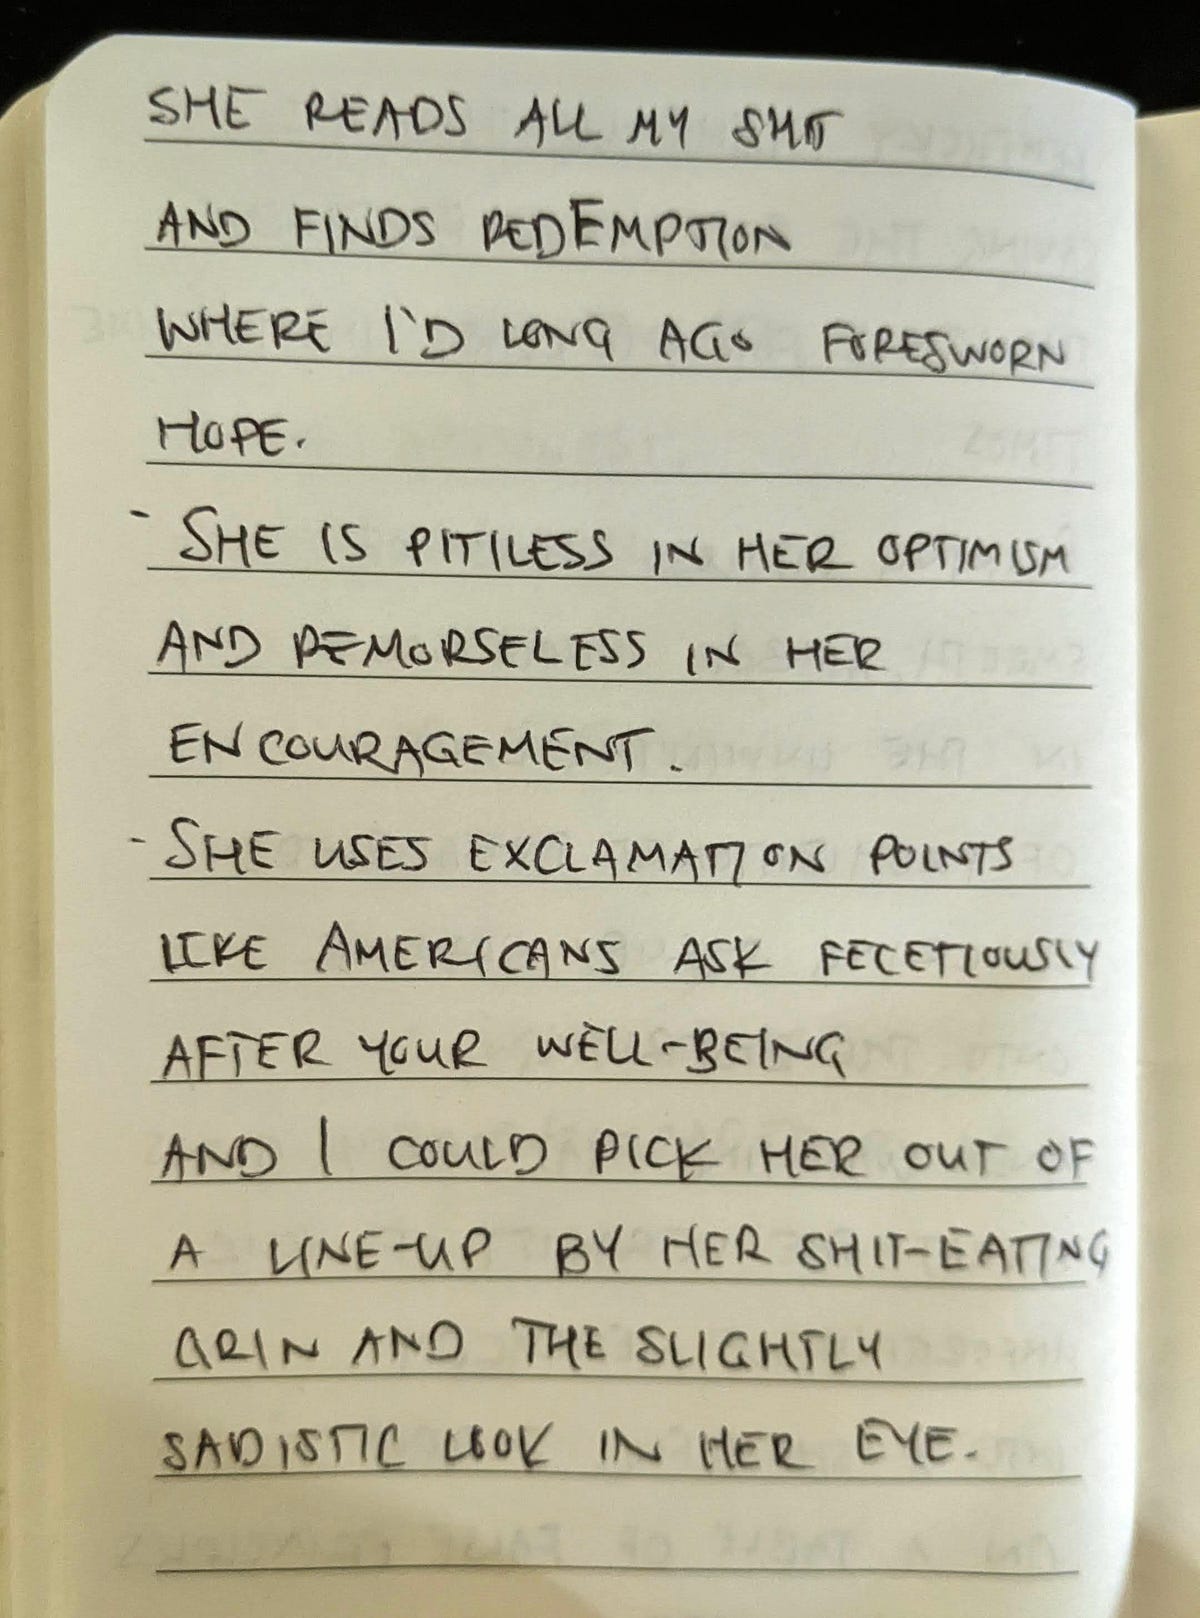 SHE READS ALL MY SHIT
AND FINDS REDEMPTION
WHERE I'D LONG AGO FORESWORN
HOPE.
- SHE IS PITILESS IN HER OPTIMISM
AND REMORSELESS IN HER
ENCOURAGEMENT.
- SHE USES EXCLAMATION POINTS
LIKE AMERICANS ASK FECETIOUSLY
AFTER YOUR WELL-BEING
AND I COULD PICK HER OUT OF
A LINE-UP BY HER SHIT-EATING
GRIN AND THE SLIGHTLY
SADISTIC LOOK IN HER EYE.